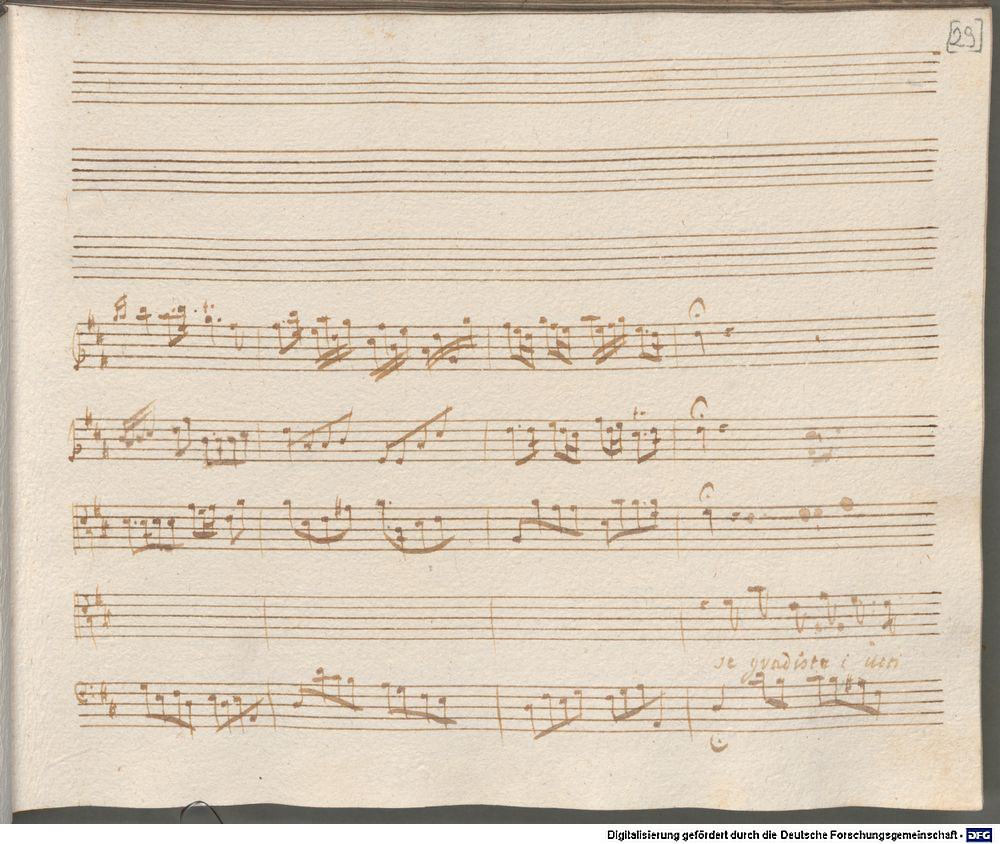 [29]
se gradiste i
Digitalisierung gefördert durch die Deutsche Forschungsgemeinschaft - DFG